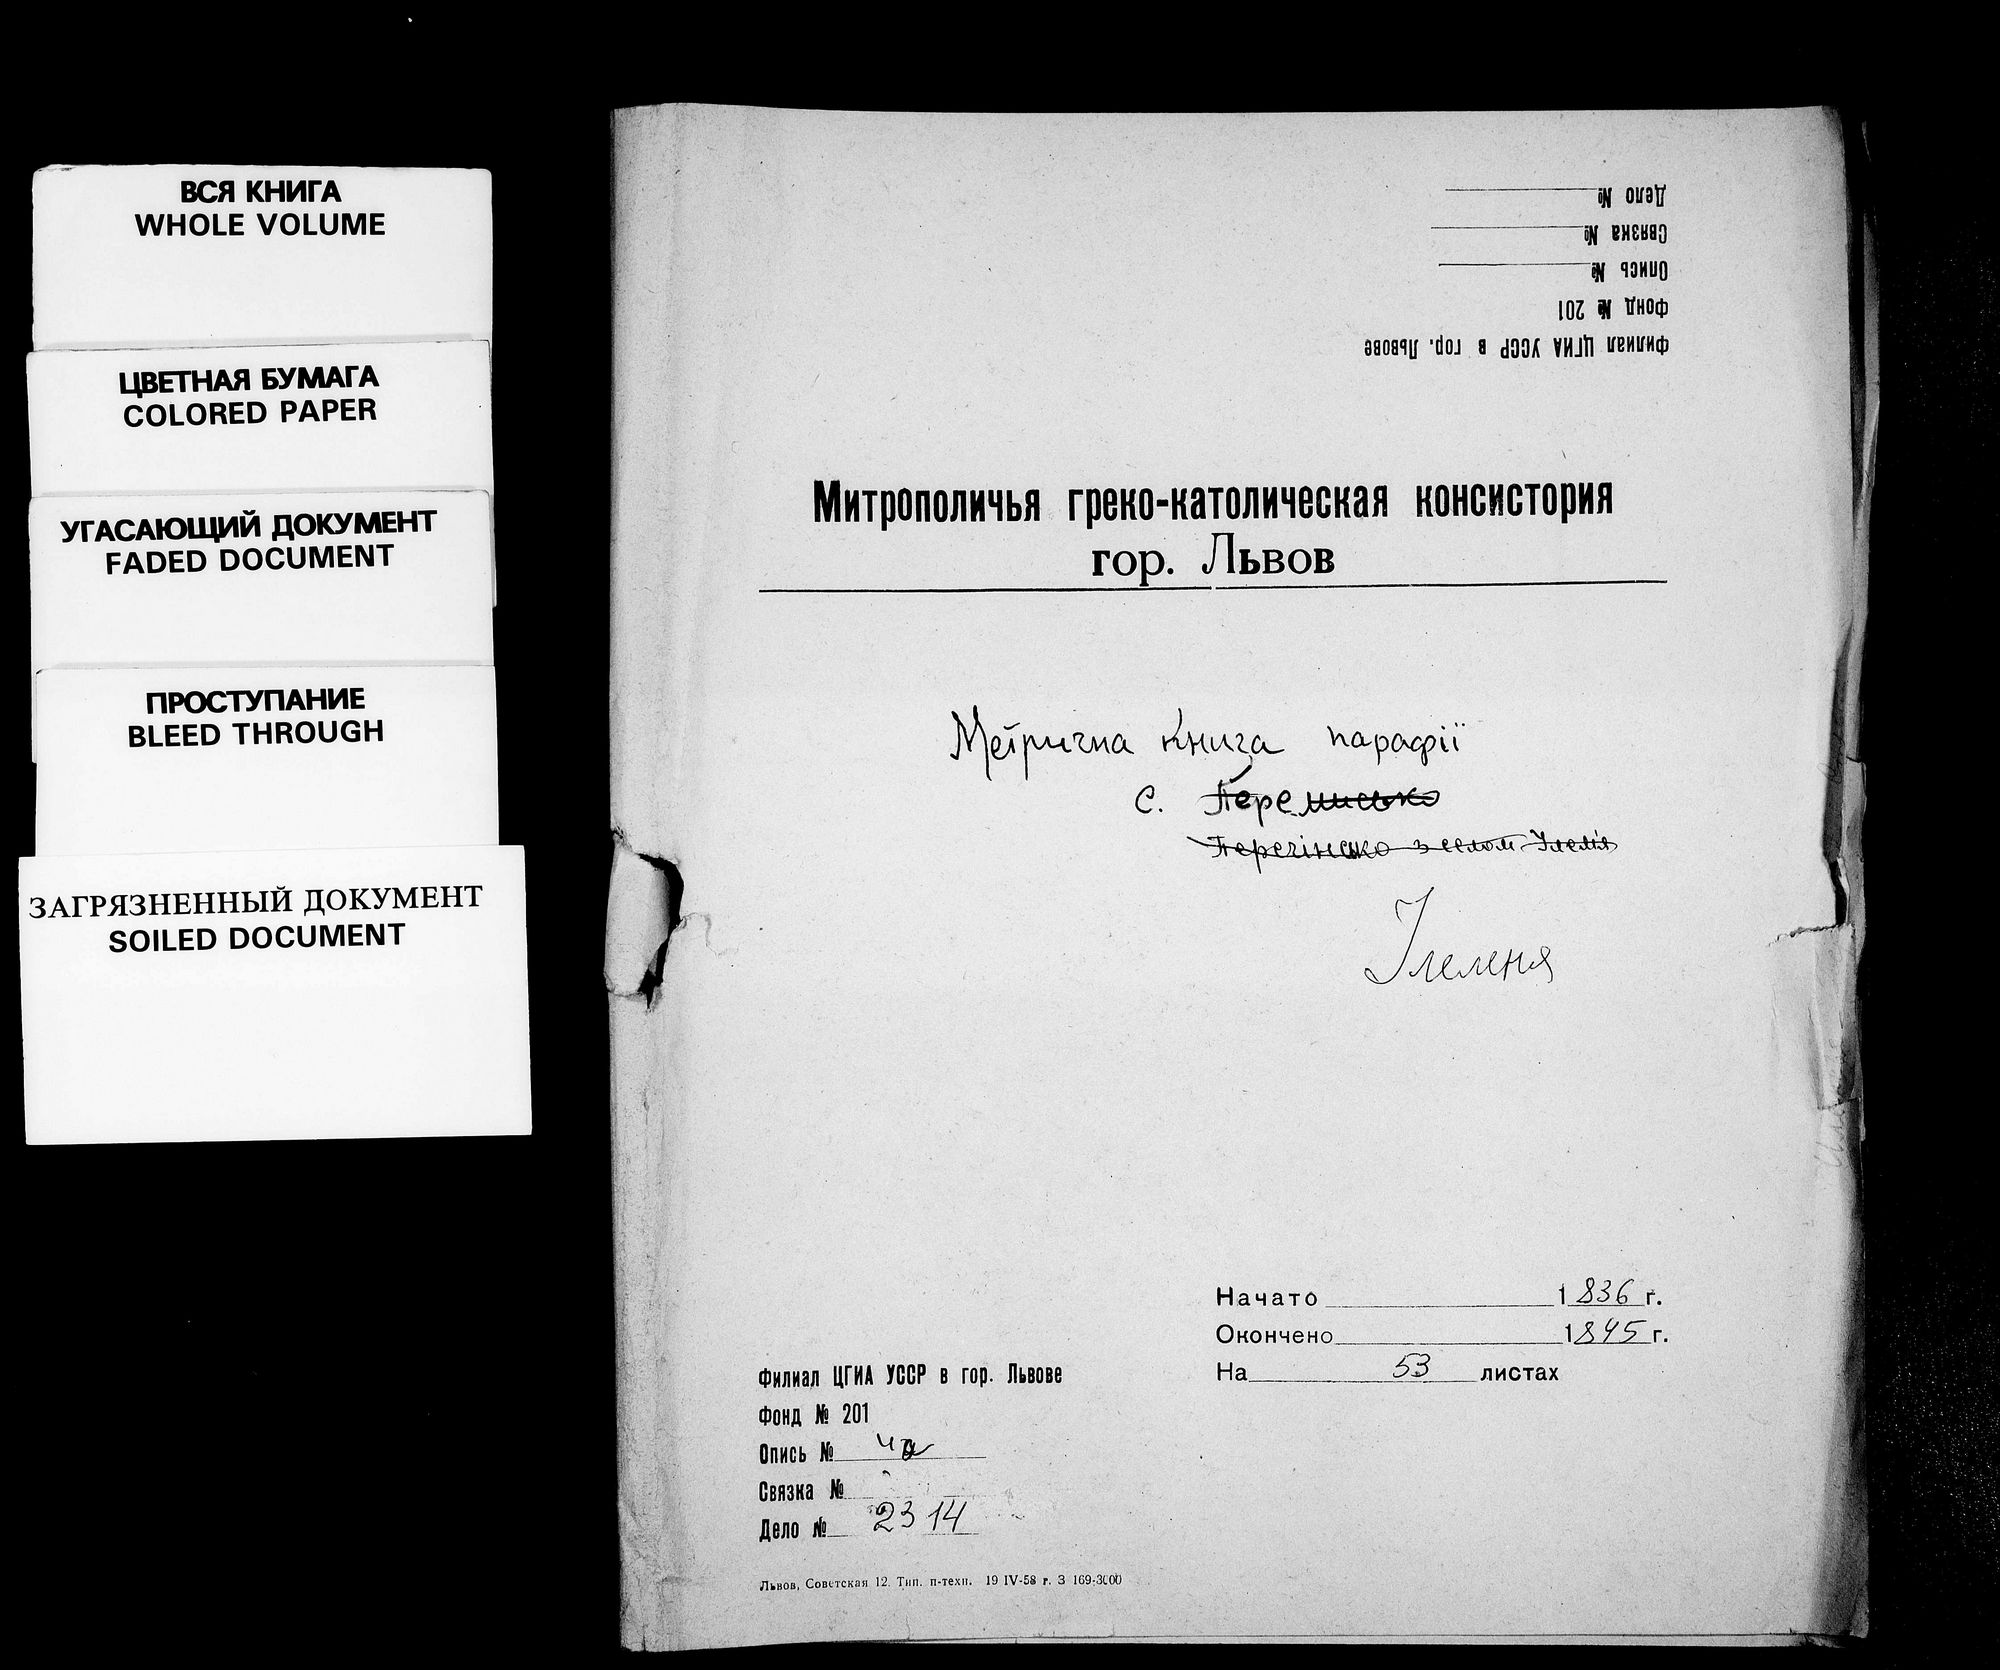 ВСЯ КНИГА
WHOLE VOLUME
ЦВЕТНАЯ БУМАГА
COLORED PAPER
УГАСАЮЩИЙ ДОКУМЕНТ
FADED DOCUMENT
ПРОСТУПАНИЕ
BLEED THROUGH
ЗАГРЯЗНЕННЫЙ ДОКУМЕНТ
SOILED DOCUMENT
Филиал ЦГИА УССР в гор. Львове
Фонд № 201
Опись №
Связка №
Дело №
Митрополичья греко-католическая консистория
гор. Львов
Метрична книга парафії
с. Перемисько
Перегінсько з селом Ілемія
Ілемня
Начато 1836 г.
Окончено 1845 г.
На 53 листах
Филиал ЦГИА УССР в гор. Львове
Фонд № 201
Опись № 4а
Связка №
Дело № 2314
Львов, Советская 12. Тип. п-техн. 19 IV-58 г. З 169-3000